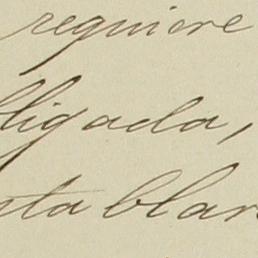 requiere
lligada,
nta blan